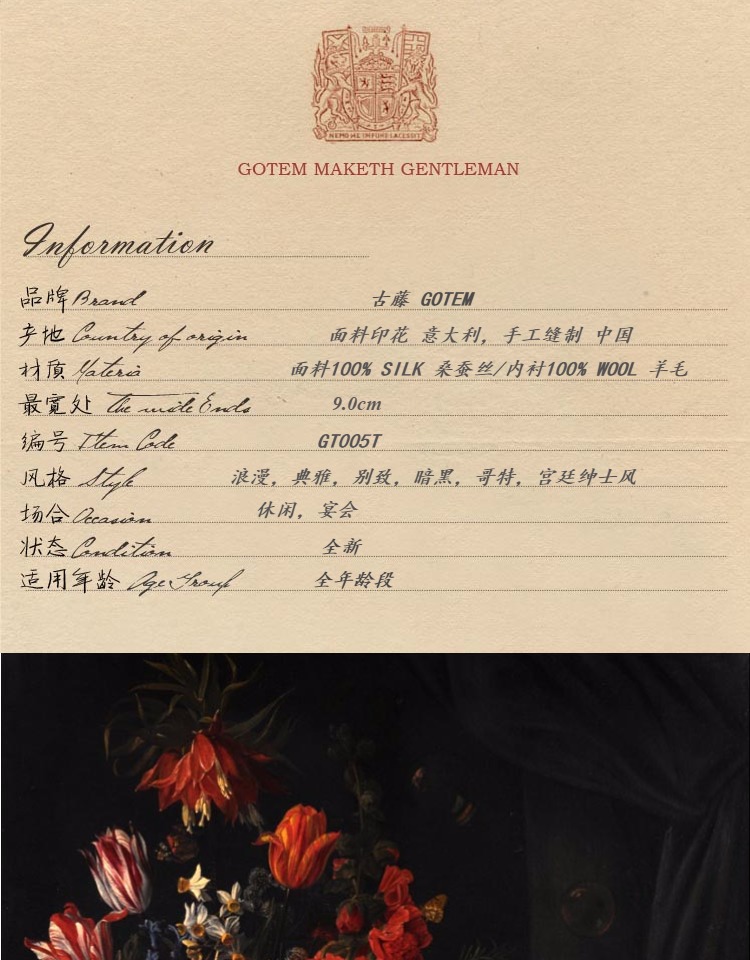 NEMO ME IMPUNE LACESSIT
GOTEM MAKETH GENTLEMAN
Information
品牌 Brand 古藤 GOTEM
产地 Country of origin 面料印花 意大利, 手工缝制 中国
材质 Materia 面料100% SILK 桑蚕丝/内衬100% WOOL 羊毛
最宽处 the wide Ends 9.0cm
编号 Item Code GT005T
风格 Style 浪漫, 典雅, 别致, 暗黑, 哥特, 宫廷绅士风
场合 Occasion 休闲, 宴会
状态 Condition 全新
适用年龄 Age Group 全年龄段